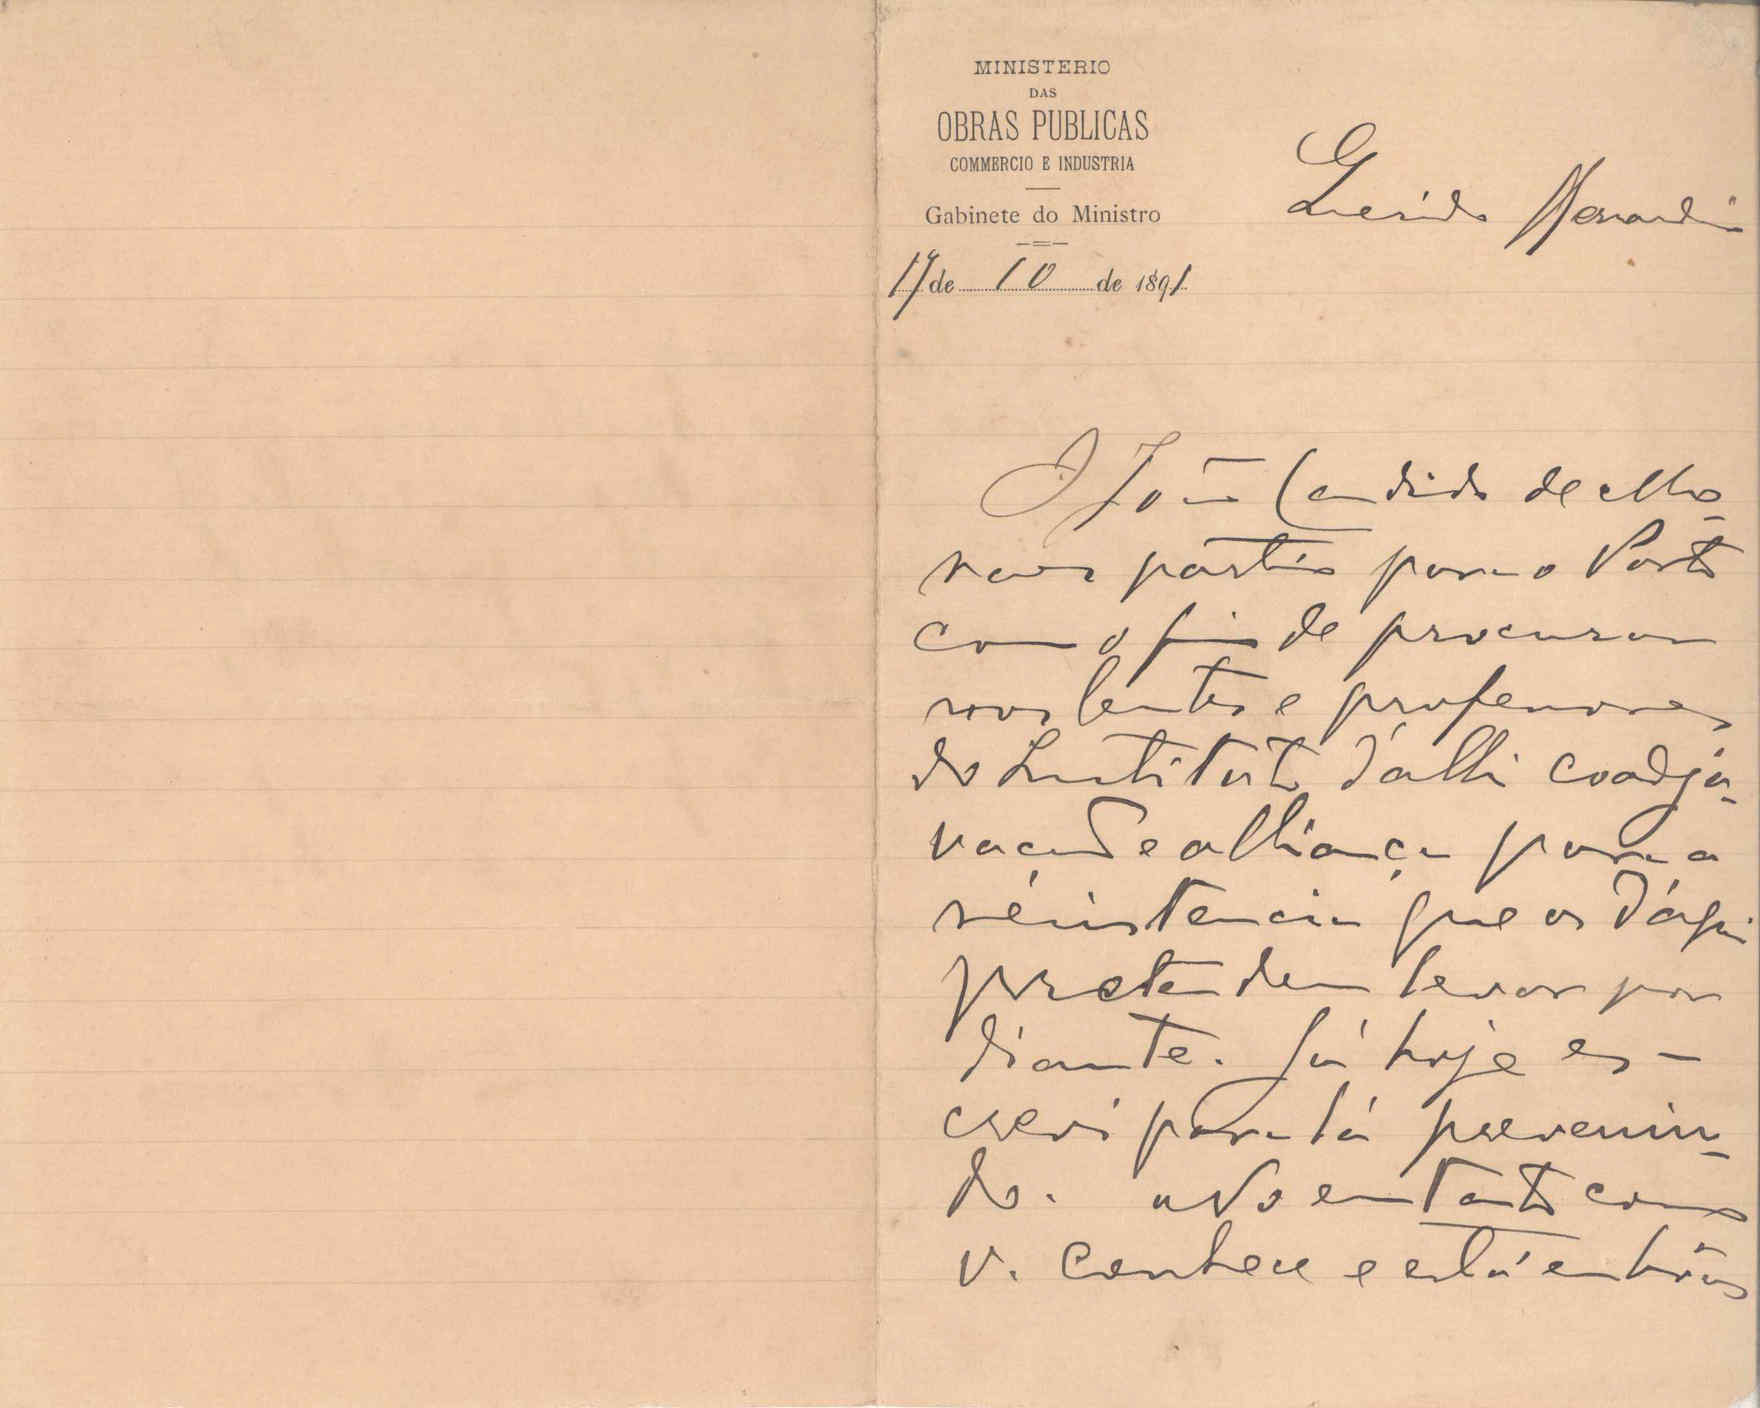 MINISTERIO
DAS
OBRAS PUBLICAS
COMMERCIO E INDUSTRIA
Gabinete do Ministro
17 de 10 de 1891
Querido Bernardino
O João Candido de Mo-
raes partio para o Porto
com o fim de procurar
nos lentes e professores
do Instituto d'alli coadju-
vação e alliança para a
resistencia que os d'aqui
pretendem levar por
diante. Já hoje es-
crevi para lá prevenin-
do. No entanto como
V. conhece e está em bôas